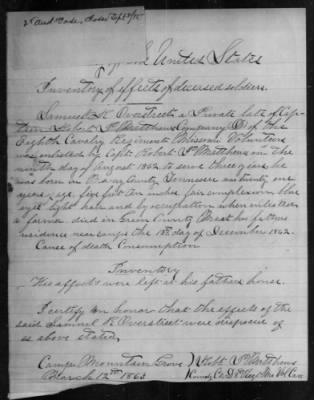 United States
Inventory of effects of deceased soldiers.
Samuel R. Overstreet a Private late of Cap-
tain Robert P. Matthews Company (D) of the
Eighth Cavalry Regiment Missouri Volunteers
was enrolled by Capt Robert P. Matthews on the
ninth day of August 1862 to serve three years, he
was born in County Tennessee is twenty one
years of age five feet ten inches fair complexion blue
eyes light hair and by occupation when enlisted
a farmer. died in Green County Mo at his fathers
residence near the 18th day of December 1862.
Cause of death Consumption
Inventory
His effects were left at his fathers house.
I certify on honor that the effects of the
said Samuel R Overstreet were disposed of
as above stated,
Camp Mountain Grove Robt P Matthews
March 12th 1863 Comdg Co D 8th Regt Mo Vol Cav